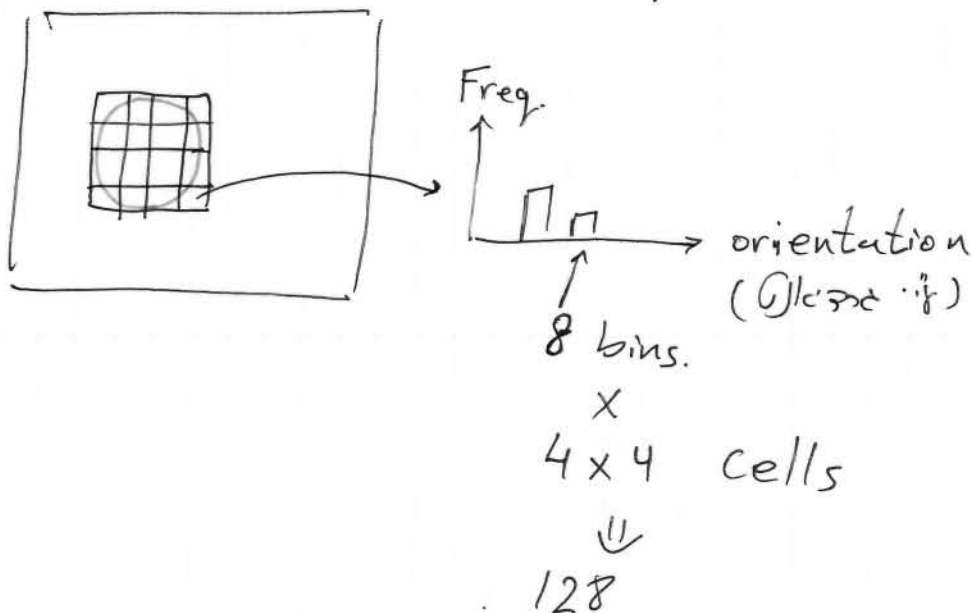 Freq.
orientation
8 bins.
×
4 × 4 cells
⇓
128